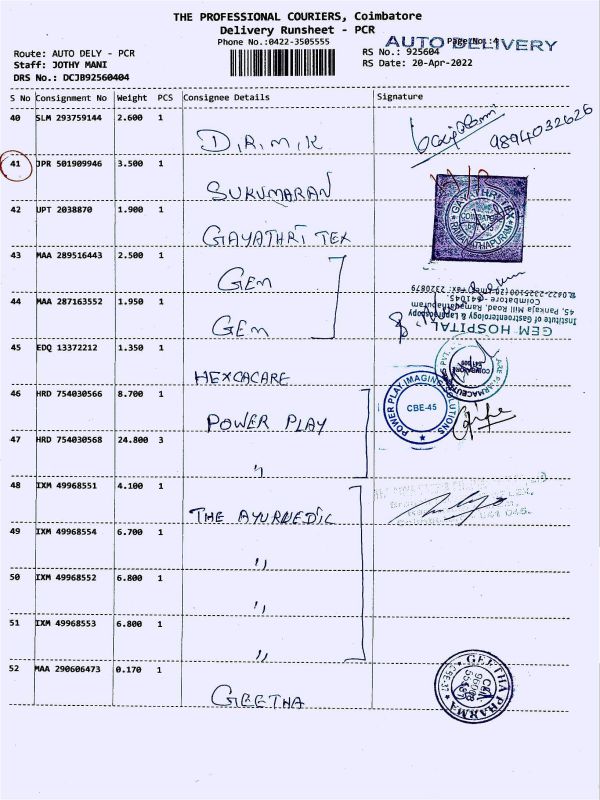 THE PROFESSIONAL COURIERS, Coimbatore
Delivery Runsheet - PCR
Phone No.:0422-3505555
Page No: 4
AUTO DELIVERY
Route: AUTO DELY - PCR
Staff: JOTHY MANI
DRS No.: DCJB92560404
RS No.: 925604
RS Date: 20-Apr-2022
S No Consignment No Weight PCS Consignee Details Signature
40 SLM 293759144 2.600 1
D.R.M.K
9894032626
41 JPR 501909946 3.500 1
SUKUMARAN
42 UPT 2038870 1.900 1
GAYATHRI TEX
GAYATHRI TEX
COIMBATORE
RAMANATHAPURAM
43 MAA 289516443 2.500 1
GEM
44 MAA 287163552 1.950 1
GEM
GEM HOSPITAL
Institute of Gastroenterology & Laparoscopy
45, Pankaja Mill Road, Ramanathapuram
Coimbatore - 641045.
45 EDQ 13372212 1.350 1
HEXCACARE
46 HRD 754030566 8.700 1
POWER PLAY
POWER PLAY IMAGING SOLUTIONS
CBE-45
47 HRD 754030568 24.800 3
"
48 IXM 49968551 4.100 1
THE AYURVEDIC
49 IXM 49968554 6.700 1
"
50 IXM 49968552 6.800 1
"
51 IXM 49968553 6.800 1
"
52 MAA 290606473 0.170 1
GEETHA
GEETHA PHARMA
CBE-37